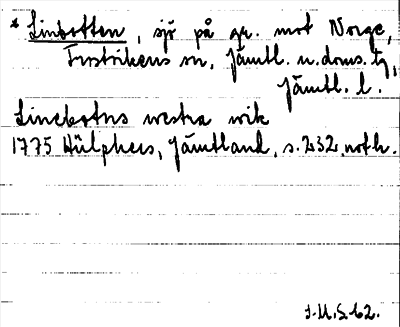 * Linbotten, sjö på gr. mot Norge,
Frostvikens sn, Jämtl. n. doms. tg,
Jämtl. l.
Linebotns westra wik
1775 Hülphers, Jämtland, s. 232, noth.
J.M.S. 62.